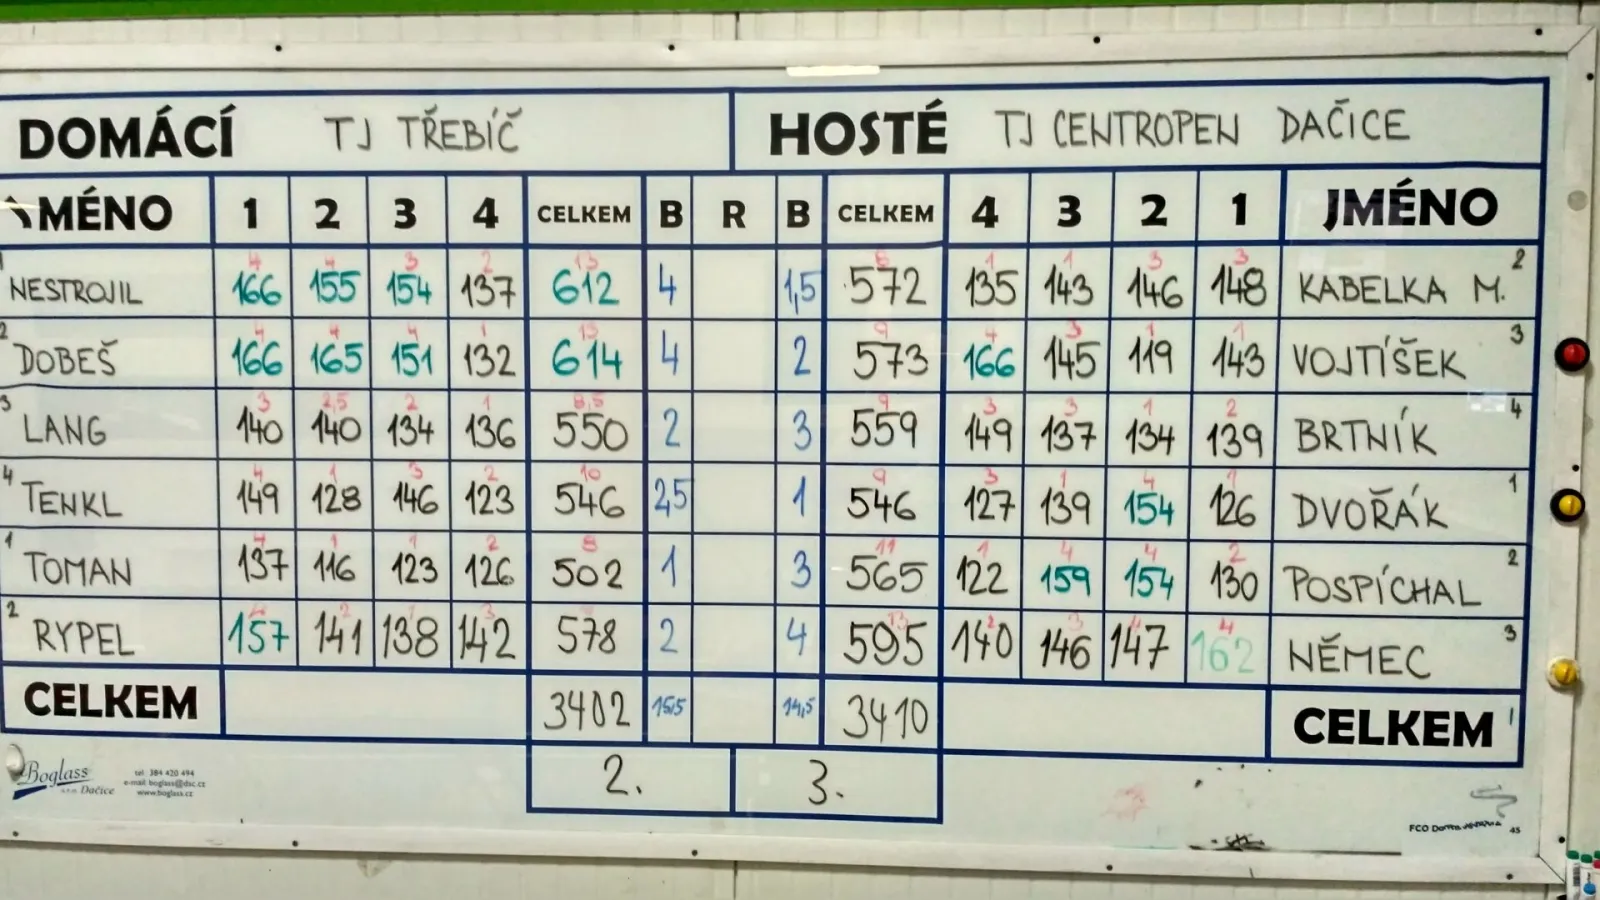 DOMÁCÍ TJ TŘEBÍČ HOSTÉ TJ CENTROPEN DAČICE
MÉNO 1 2 3 4 CELKEM B R B CELKEM 4 3 2 1 JMÉNO
4 4 3 2 13 1 1 3 3 2
NESTROJIL 166 155 154 137 612 4 1,5 572 135 143 146 148 KABELKA M.
2 4 4 4 1 13 9 4 3 1 1 3
DOBEŠ 166 165 151 132 614 4 2 573 166 145 119 143 VOJTÍŠEK
3 3 2,5 2 1 8,5 9 3 3 1 2 4
LANG 140 140 134 136 550 2 3 559 149 137 134 139 BRTNÍK
4 4 1 3 2 10 9 3 1 4 1 1
TENKL 149 128 146 123 546 2,5 1 546 127 139 154 126 DVOŘÁK
1 4 1 1 2 8 11 1 4 4 2 2
TOMAN 137 116 123 126 502 1 3 565 122 159 154 130 POSPÍCHAL
2 2 1 3 13 2 3 4 4 3
RYPEL 157 141 138 142 578 2 4 595 140 146 147 162 NĚMEC
CELKEM 3402 15,5 14,5 3410 CELKEM
2. 3.
Boglass
s.r.o. Dačice
tel: 384 420 494
e-mail: boglass@dsc.cz
www.boglass.cz
FCO
45